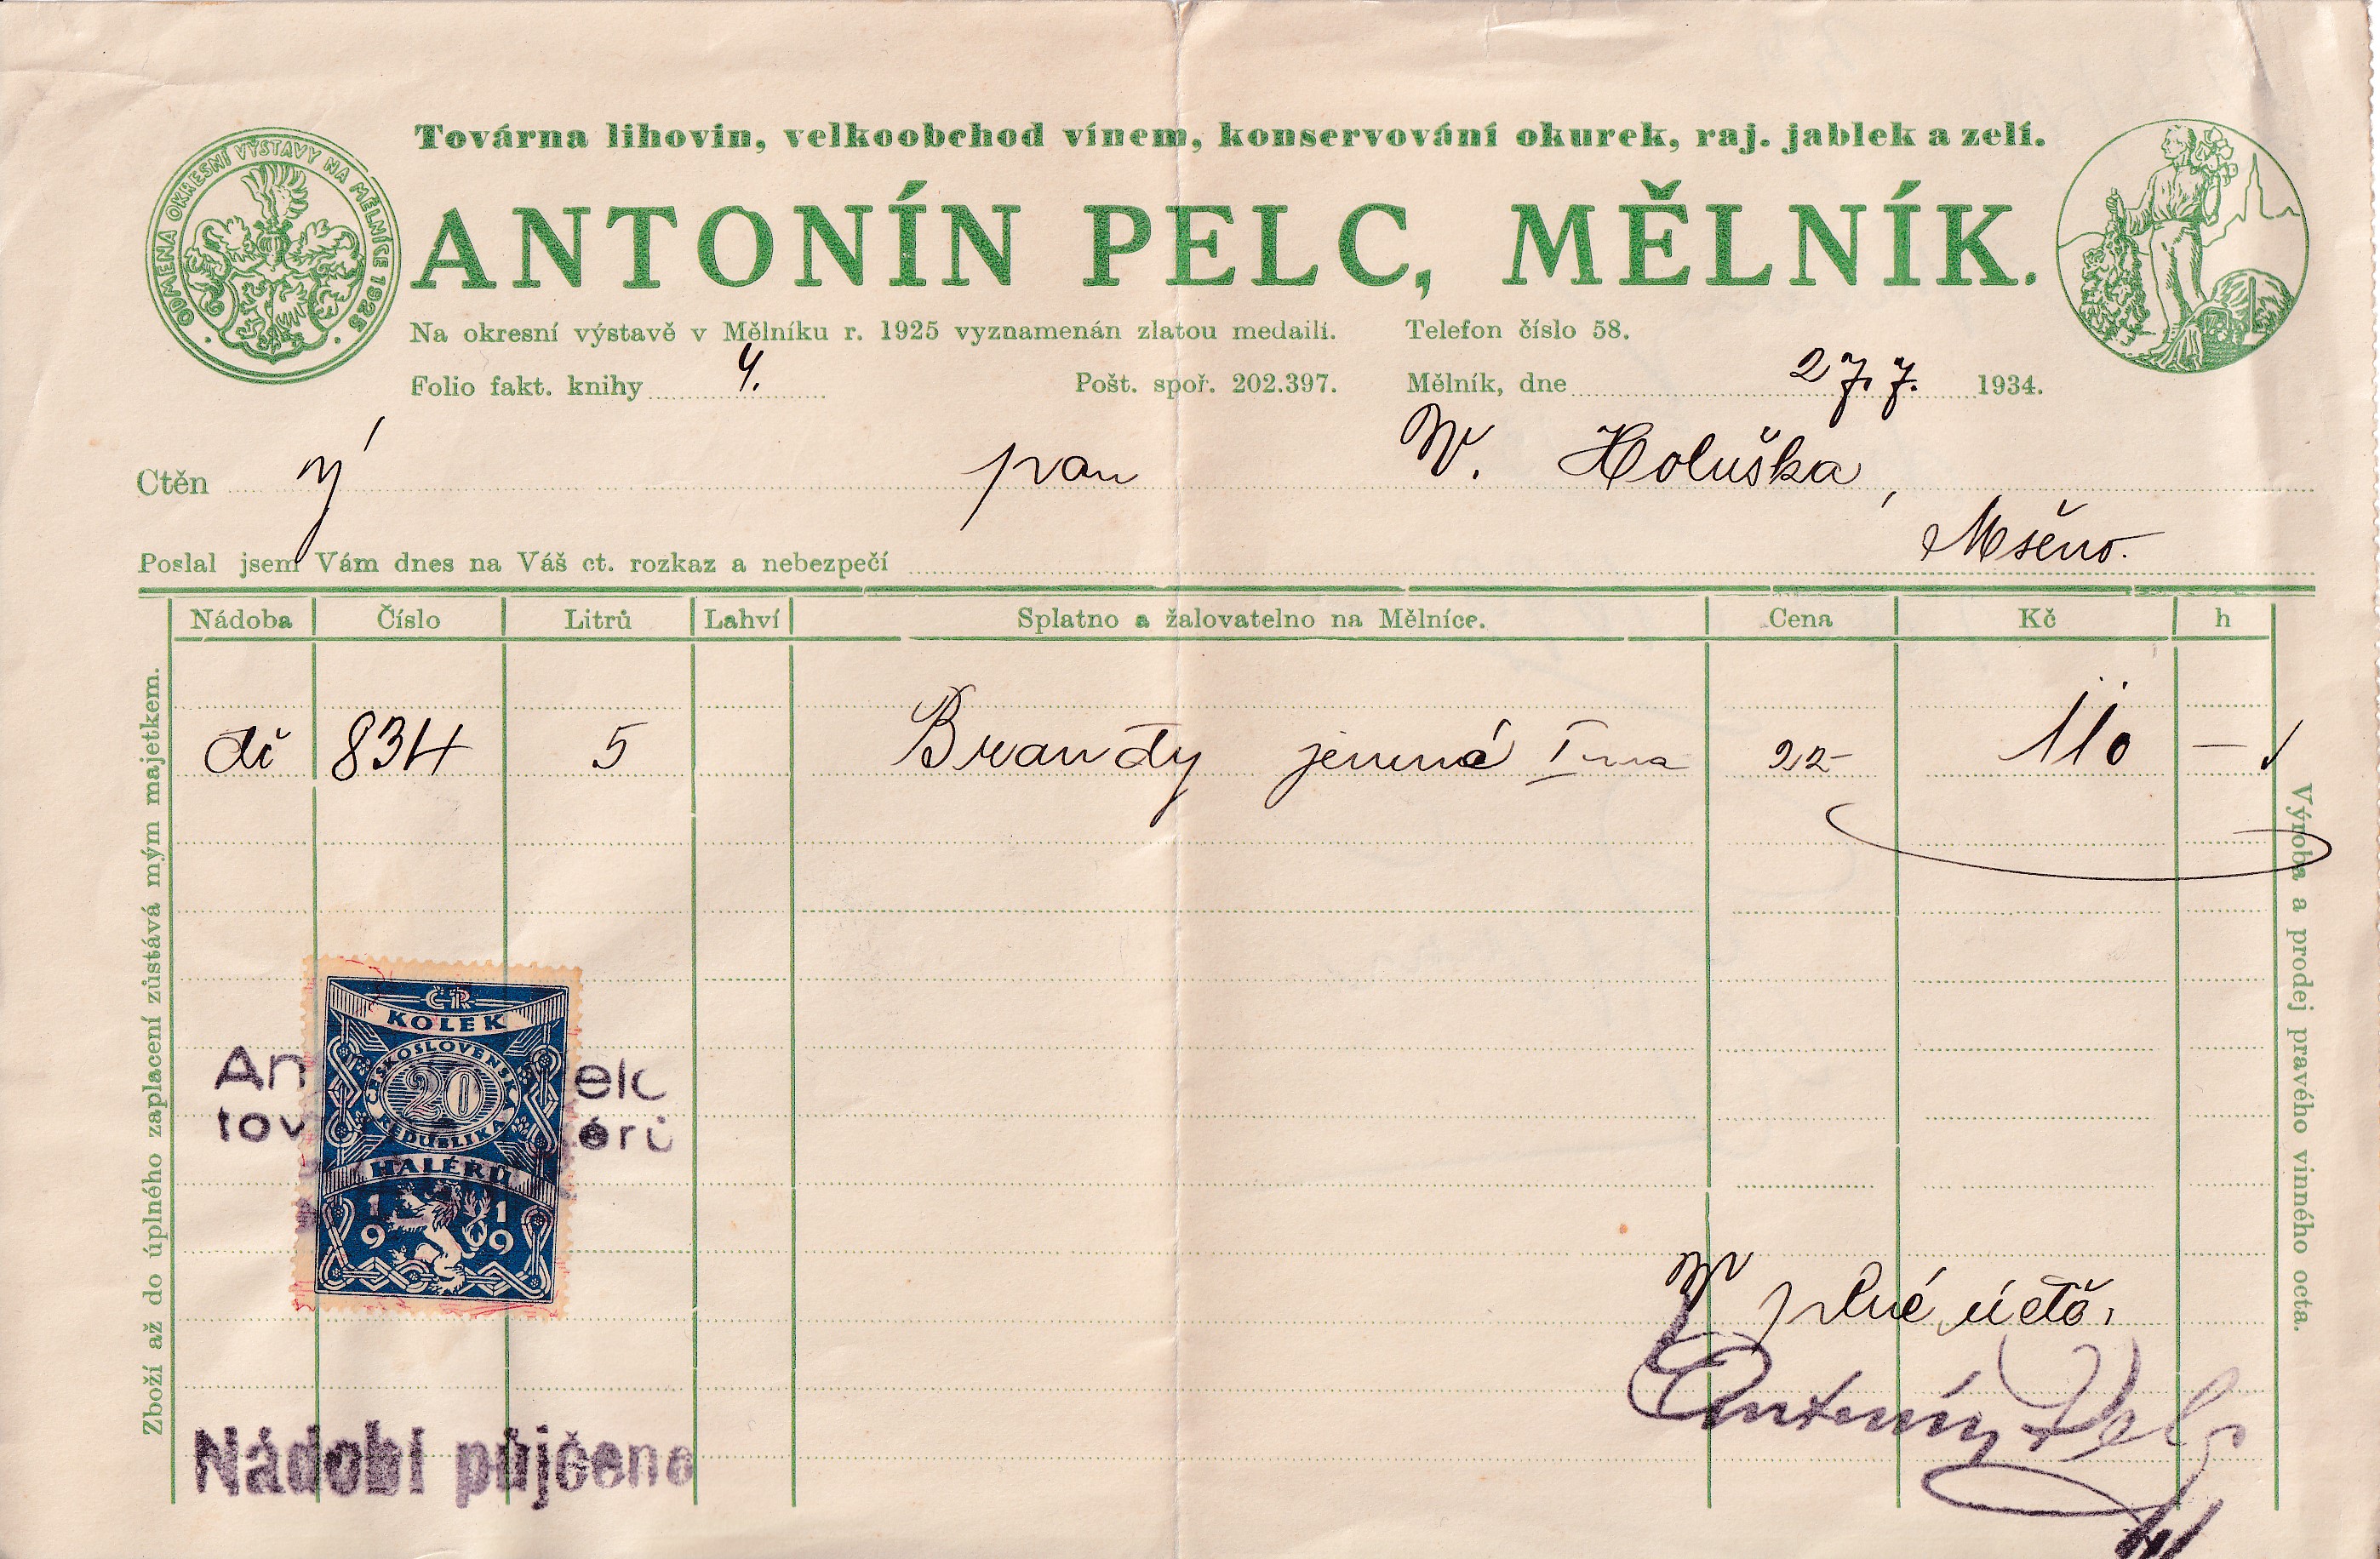 Továrna lihovin, velkoobchod vínem, konservování okurek, raj. jablek a zelí.
ODMĚNA OKRESNÍ VÝSTAVY NA MĚLNÍCE 1925
ANTONÍN PELC, MĚLNÍK.
Na okresní výstavě v Mělníku r. 1925 vyznamenán zlatou medailí. Telefon číslo 58.
Folio fakt. knihy 4. Pošt. spoř. 202.397. Mělník, dne 27.7. 1934.
Ctěn ý pan W. Holuška,
Mšeno.
Poslal jsem Vám dnes na Váš ct. rozkaz a nebezpečí
Nádoba Číslo Litrů Lahví Splatno a žalovatelno na Mělníce. Cena Kč h
834 5 Brandy jemná I 22- 110 —
Zboží až do úplného zaplacení zůstává mým majetkem.
Výroba a prodej pravého vinného octa.
ČR
KOLEK
ČESKOSLOVENSKÁ
20
REPUBLIKA
HALÉŘŮ
1919
An elc
tov érů
plné úctě,
Antonín Pelc
Nádobí půjčeno